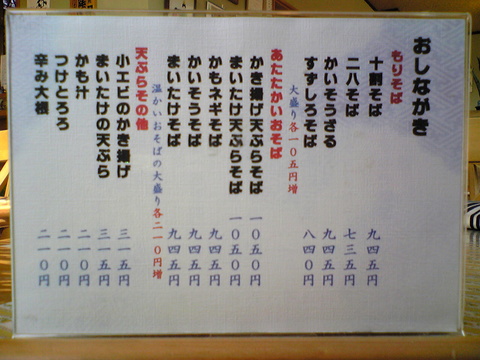 おしながき
もりそば
十割そば 九四五円
二八そば 七三五円
かいそうざる 九四五円
すずしろそば 八四〇円
大盛り各一〇五円増
あたたかいおそば
かき揚げ天ぷらそば 一〇五〇円
まいたけ天ぷらそば 一〇五〇円
かもネギそば 九四五円
かいそうそば 九四五円
まいたけそば 九四五円
温かいおそばの大盛り各二一〇円増
天ぷらその他
小エビのかき揚げ 三一五円
まいたけの天ぷら 三一五円
かも汁 二一〇円
つけとろろ 二一〇円
辛み大根 二一〇円